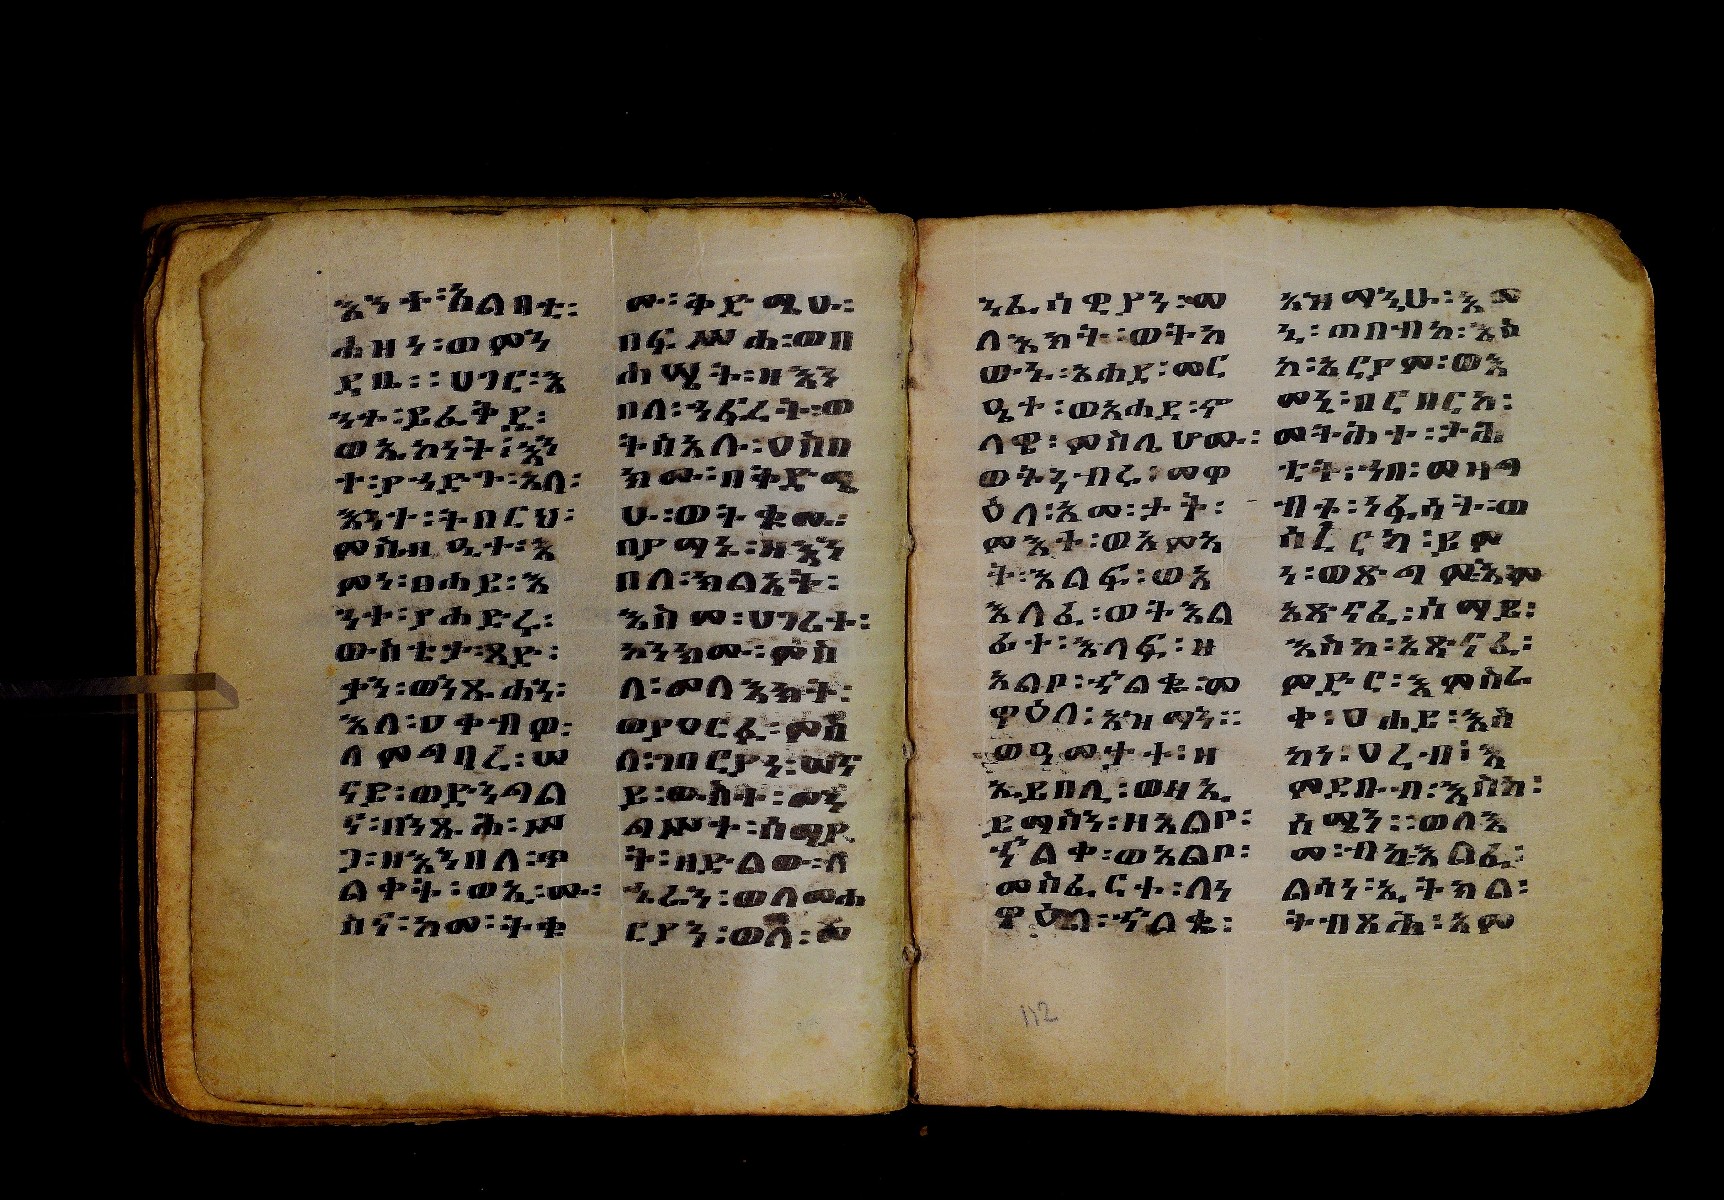 እንተ፡አልባቲ፡
ሐዘን፡ወምን
ዳቤ፡፡ሀገር፡እ
ንተ፡ይፈቅዱ፡
ወኢኮነት፡እን
ተ፡ያንድጉ፡እለ፡
እንተ፡ትበርህ፡
ምስብዒተ፡እ
ምነ፡ፀሐይ፡እ
ንተ፡ያሐድሩ፡
ውስቲታ፡ጻድ፡
ቃን፡ወንጹሐን፡
እለ፡ዐቀብዎ፡
ለምግባረ፡ሠ
ናይ፡ወድንግል
ና፡በንጹሕ፡ሥ
ጋ፡ዘእንበለ፡ጥ
ልቀት፡ወኢሙ፡
ስና፡ከመ፡ትቁ
ሙ፡ቅድሜሁ፡
በፍሥሐ፡ወበ
ሐሤት፡ዘእን
በለ፡ንፍረት፡ወ
ትስእሉ፡ዐስበ
ክሙ፡በቅድሜ
ሁ፡ወትቁሙ፡
በየማኑ፡ዘእን
በለ፡ክልአት፡
እስመ፡ሀገሪተ፡
ኮንክሙ፡ምስ
ለ፡መላእክት፡
ወያዐርፉ፡ምስ
ለ፡ገበርያነ፡ሠና
ይ፡ውስተ፡መን
ግሥተ፡ሰማያ
ት፡ዘይልው፡ለ
ኄራን፡ወለመሐ
ርያን፡ወለ፡መ
ንፈሳዊያን፡መ
ላእክት፡ወትከ
ውኑ፡አሐደ፡መር
ዔተ፡ወአሐደ፡ኖ
ላዌ፡ምስሌሆሙ፡
ወትነብሩ፡መዋ
ዕለ፡እመ፡ታት፡
ምእት፡ወእምእ
ት፡እልፍ፡ወእ
እላፊ፡ወትእል
ፊተ፡እላፍ፡ዘ
አልቦ፡ኍልቁ፡መ
ዋዕለ፡አዝማን፡፡
ወዓመታተ፡ዘ
ኢይበሊ፡ወዘኢ
ይማስን፡ዘአልቦ፡
ኍልቀ፡ወአልቦ፡
መስፈርተ፡ለነ
ዋዕለ፡ኍልቁ፡
አዝማኒሁ፡እመ
ኒ፡ጠበብከ፡እስ
ከ፡አርያም፡ወእ
መኒ፡በርበርከ፡
መትሕተ፡ታሕ
ቲት፡ነበ፡መዛግ
ብተ፡ነፋሳት፡ወ
ሰረርከ፡ይም
ነ፡ወጽግመ፡እም
አጽናፈ፡ሰማይ፡
እስከ፡አጽናፈ፡
ምድር፡እምስራ
ቀ፡ፀሐይ፡እስ
ከነ፡ዐረብ፡እ
ምደቡብ፡እስከ፡
ሰሜን፡፡ወለእ
መ፡ብከ፡እልፈ፡
ልሳን፡ኢትክል፡
ትብጻሕ፡እም
112